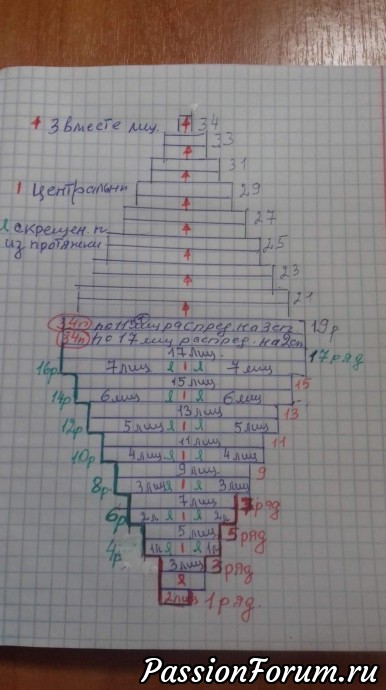 ↑ 3 вместе лиц. 34
33
31
1 Центральн 29
27
скрещен. п. 25
из протяжки
23
21
34п по лиц распред. на 3 сп 19 р
34п по 17 лиц распред. на 2 сп
17 лиц. 17 ряд
16р 7 лиц 1 7 лиц
15 лиц 15
14р 6 лиц 1 6 лиц
13 лиц 13
12р 5 лиц 1 5 лиц
11 лиц 11
10р 4 лиц 1 4 лиц
9 лиц 9
8р 3 лиц 1 3 лиц
7 лиц ряд
6р 2л 1 2л
5 лиц 5 ряд
4р 1л 1 1л
3 лиц 3 ряд
2 лиц 1 ряд.
PassionForum.ru